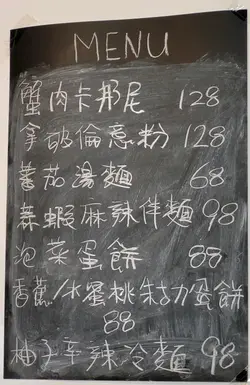 MENU
蟹肉卡邦尼 128
拿破倫意粉 128
蕃茄湯麵 68
蒜蝦麻辣伴麵 98
泡菜蛋餅 88
香蕉/水蜜桃朱古力蛋餅
88
柚子辛辣冷麵 98